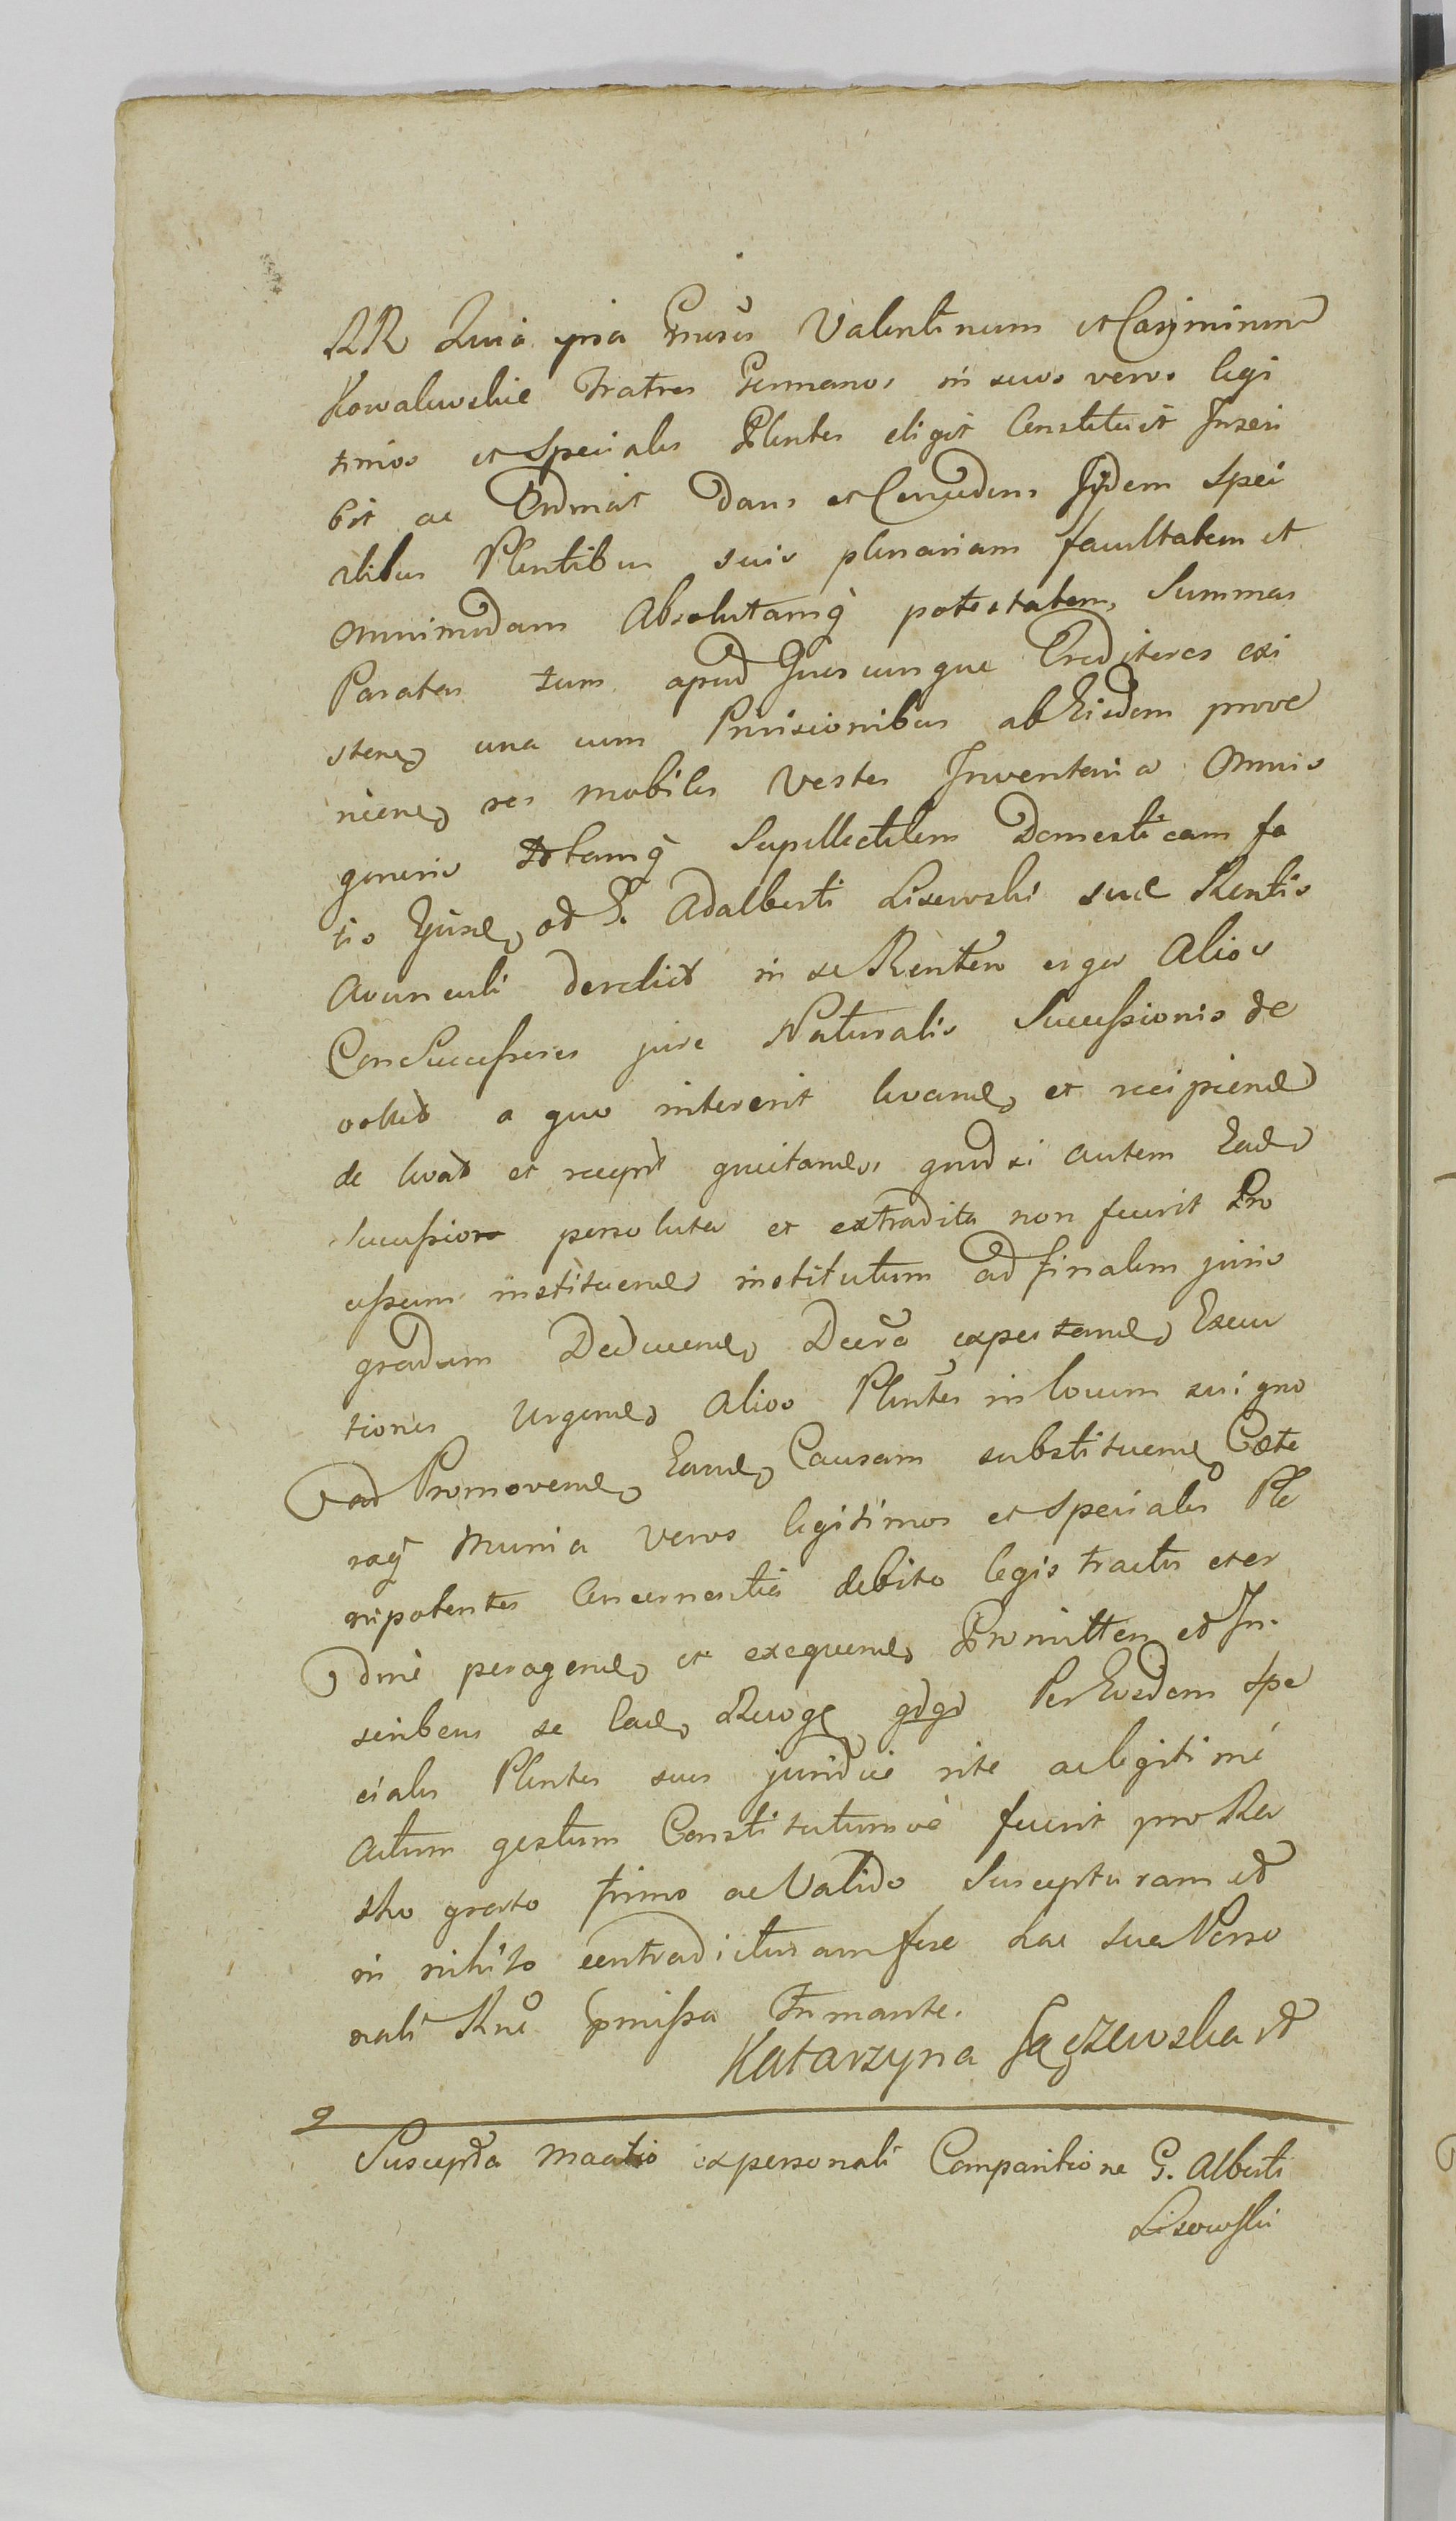 RR Quia ipsa Gnrsos Valentinum et Casimirum
Kowalewskie Fratres Germanos in suos veros legi
timos et Speciales Plentes eligit Constituit Inscri
bit ac Ordinat Dans et Concedens Iisdem Speci
alibus Plentibus suis plenariam facultatem et
Omnimodam Absolutamq potestatem, Summas
Paratas tum apud Quoscunque Creditores exi
sten una cum Provisionibus ab Eisdem prove
nien res mobiles Vestes Inventaria Omnis
generis totamq Supellectilem Domesticam fa
tis od G. Adalberti Lisewski suae Rentis
Avunculi derelict in se Renten erga Alios
ConSuccessores jure Naturalis Successionis de
volut a quo intererit levand et recipiend
de levat et recept quietand, quod si autem Ead
Successio persoluta et extradita non fuerit Pro
cessum instituend institutum ad finalem juris
gradum Deducend Decreta expectand Execu
tiones Urgend Alios Plentes in locum sui quo
ad Promovend Eand Causam substituend Caete
raq Munia Veros legitimos et Speciales Ple
nipotentes Concernentia debito legis tractu et or
dine peragend et exequend Promitten et In-
scribens se Ead Recog qdqd Per Eosdem Spe
ciales Plentes suos juridice rite ac legitime
Actum gestum Constitutumve fuerit pro Ra
tho grato firmo ac Valido Suscepturam et
in nihilo contradicturam fore hac sua Perso
nali Rne pmissa Firmante.
Katarzyna
Suscepta ex personali Comparitione G. Alberti
Lisowski